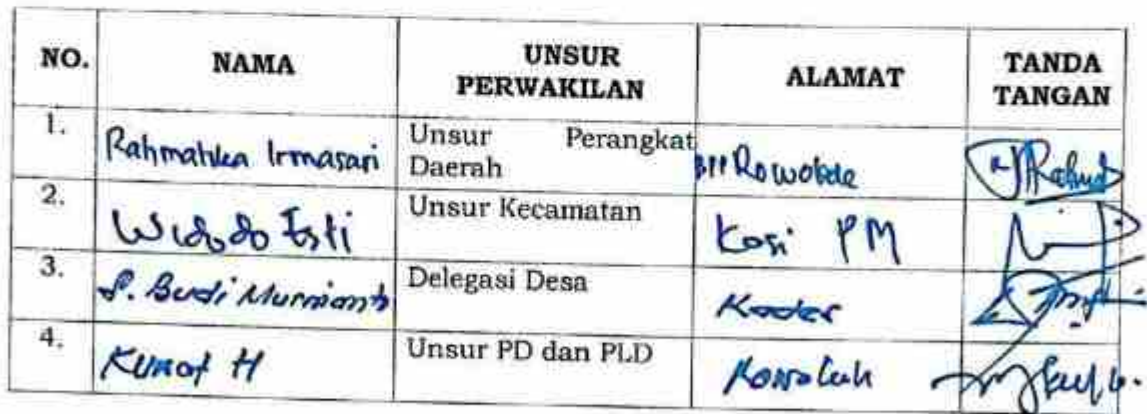 NO. NAMA UNSUR PERWAKILAN ALAMAT TANDA TANGAN
1. Rahmatika Irmasari Unsur Perangkat Daerah
2. Widodo Esti Unsur Kecamatan Kasi PM
3. S. Budi Murnianto Delegasi Desa Kades
4. Kunot H Unsur PD dan PLD